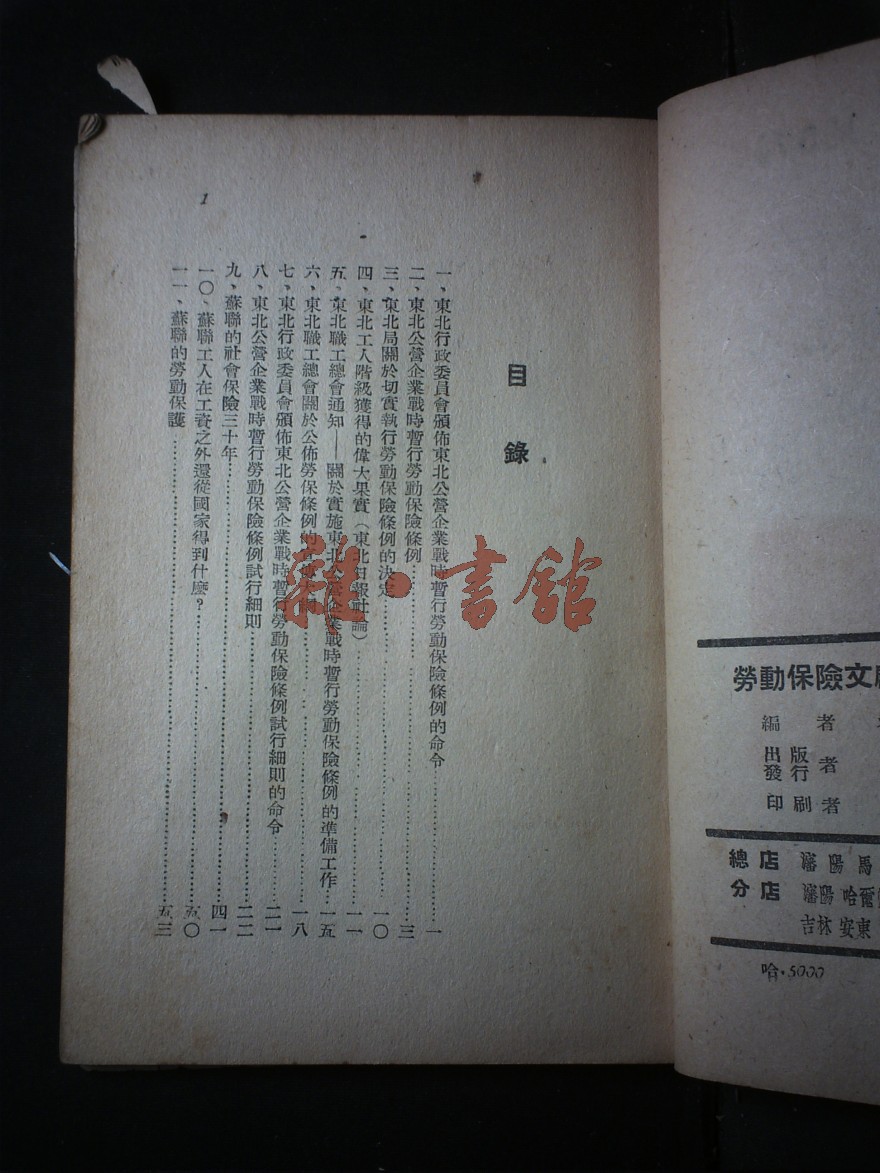 目錄
一、東北行政委員會頒佈東北公營企業戰時暫行勞動保險條例的命令……一
二、東北公營企業戰時暫行勞動保險條例……三
三、東北局關於切實執行勞動保險條例的決定……一〇
四、東北工人階級獲得的偉大果實(東北日報社論)……一一
五、東北職工總會通知——關於實施東北公營企業戰時暫行勞動保險條例的準備工作……一五
六、東北職工總會關於公佈勞保條例的……一八
七、東北行政委員會頒佈東北公營企業戰時暫行勞動保險條例試行細則的命令……二一
八、東北公營企業戰時暫行勞動保險條例試行細則……二二
九、蘇聯的社會保險三十年……四一
一〇、蘇聯工人在工資之外還從國家得到什麼?……五〇
一一、蘇聯的勞動保護……五三
1
雜·書舘
勞動保險文
編者
出版
發行者
印刷者
總店 瀋陽 馬
分店 瀋陽 哈爾
吉林 安東
哈.5000